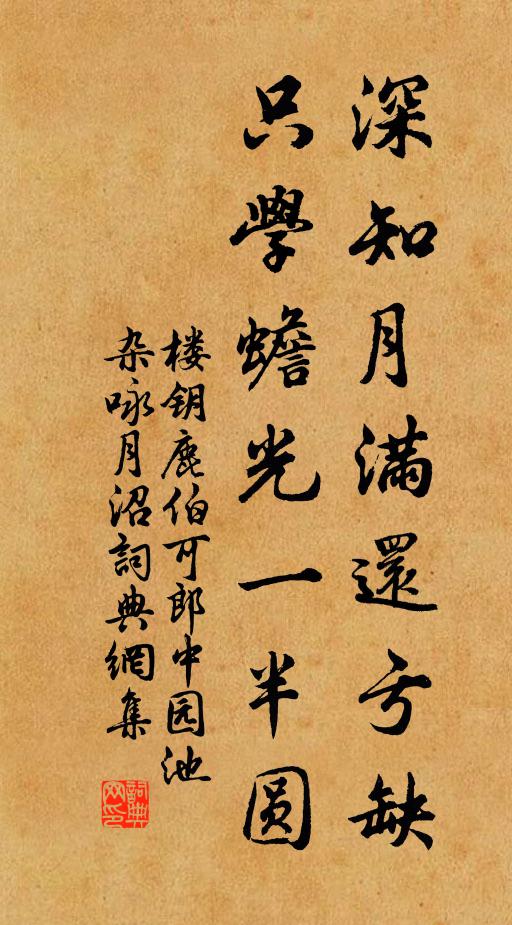 深知月滿還亏缺
只學蟾光一半圆
楼钥鹿伯可郎中园池
杂咏月沼詞典網集
詞典网印